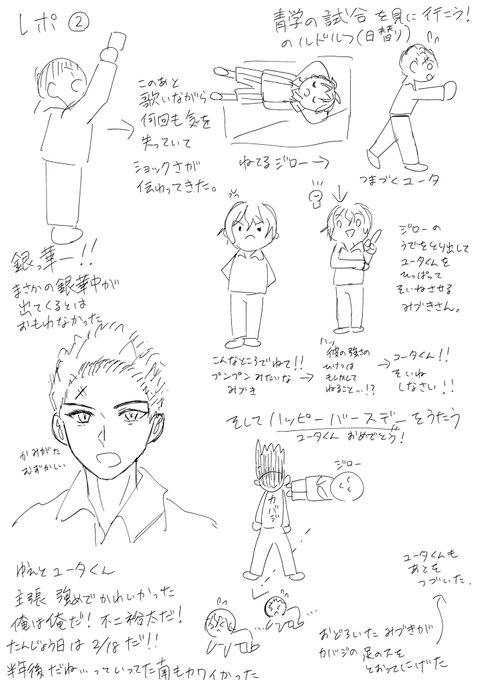 レポ②
青学の試合を見に行こう!
のルドルフ(日替り)
このあと
歌いながら
何回も気を
失っていて
ショックさが
伝わってきた。
ねてるジロー→
つまづくユータ
銀っ華ー!!
まさかの銀華中が
出てくるとは
おもわなかった
ジローの
うでをとり出して
ユータくんを
ひっぱって
そいねさせる
みづきさん。
こんなところでねて!!
プンプンみたいな
みづき
ハッ
彼の強さの
ひけつは
もしかして
ねること…!?
ユータくん!!
そいね
しなさい!!
そしてハッピーバースデーをうたう
ユータくんおめでとう!
かみがた
むずかしい
ジロー
カバジ
ゆえとユータくん
主張強めでかわいかった
俺は俺だ!不二裕太だ!
たんじょう日は2/18だ!!
半年後だね…っていってた南もカワイかった
ユータくんも
あとを
つづいた。
おどろいたみづきが
カバジの足の下を
とおってにげた